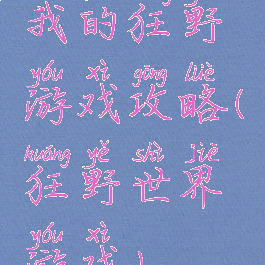 我的狂野
yóu xì gōng lüè
游戏攻略(
kuáng yě shì jiè
狂野世界
yóu xì
游戏)